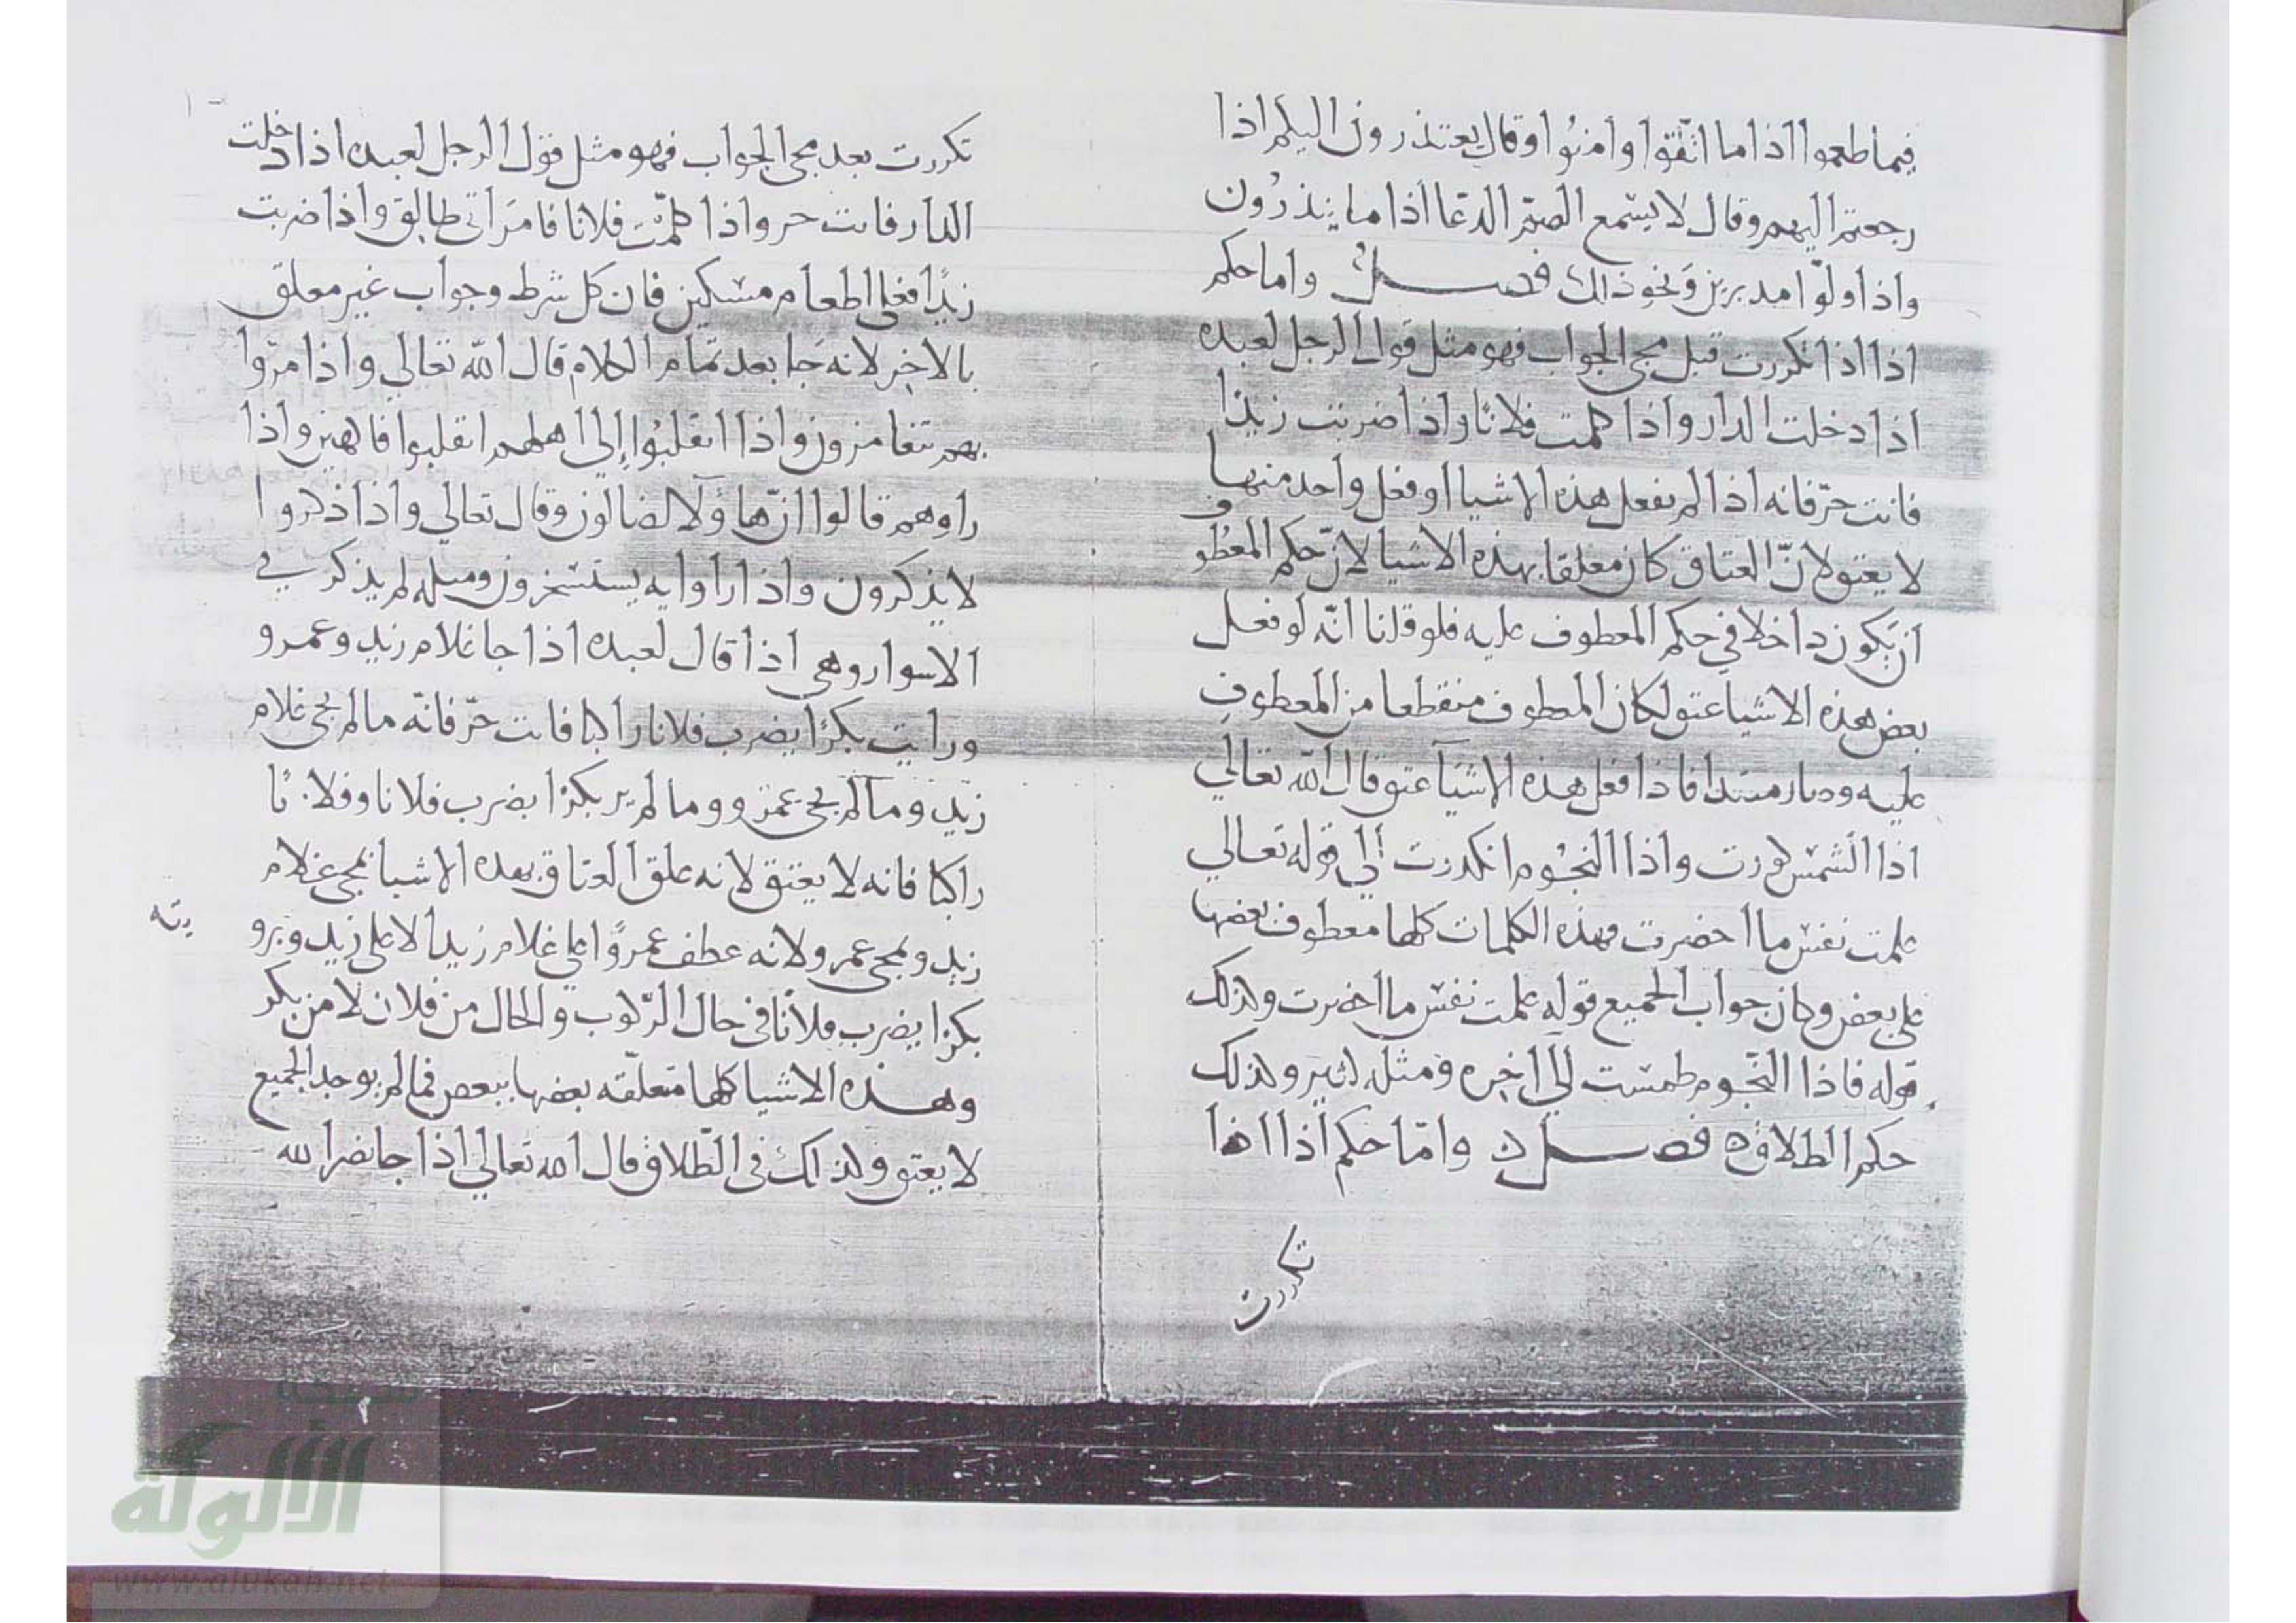 فيما طعموا اذا ما اتّقوا وامنُوا وقال يعتذرون اليكم اذا
رجعتم اليهم وقال لا يسمع الصمّ الدعا اذا ما ينذرُون
واذا ولّوا مدبرين وَنحو ذلك فصل واما حكم
اذا اذا تكررت قبل مجى الجواب فهو مثل قول الرجل لعبده
اذا دخلت الدار واذا كلمت فلانًا واذا ضربت زيدًا
فانت حرّ فانه اذا لم يفعل هذه الاشيا او فعل واحد منها
لا يعتق لانّ العتاق كان معلقا بهذه الاشيا لانّ حكم المعطوف
ان يَكون داخلا في حكم المعطوف عليه فلو قلنا انّه لو فعل
بعض هذه الاشيا عتق لكان المعطوف منقطعا من المعطوف
عليه وصار مبتدا فاذا فعل هذه الاشيآ عتق قال الله تعالي
اذا الشمس كورت واذا النجُوم انكدرت إلي قوله تعالي
علمت نفس ما احضرت فهذه الكلمات كلها معطوف بعضها
على بعض وكان جواب الجميع قوله علمت نفس ما احضرت وكذلك
قوله فاذا النّجوم طمست الي اخره ومثله كثير وكذلك
حكم الطلاق ه فصل ه وامّا حكم اذا اذا
تكررت
تكررت بعد مجى الجواب فهو مثل قول الرجل لعبده اذا دخلت
الدار فانت حر واذا كلّمت فلانا فامرَاتي طالق واذا ضربت
زيدًا فعلي اطعام مسكين فان كل شرط وجواب غير معلق
بالاخر لانه جَا بعد تمام الكلام قال الله تعالي واذا مرّوا
بهم يتغامزون واذا انقلبُوا إلي اهلهم انقلبوا فاكهين واذا
راوهم قالوا انّ هاؤلآ لضالون وقال تعالي واذا ذكروا
لا يذكرون واذا راوا ايه يستسخرون ومسله لم يذكر في
الاسوار وهي اذا قال لعبده اذا جا غلام زيد وعمرو
ورايت بكرًا يضرب فلانا راكبا فانت حرّ فانّه ما لم يجى غلام
زيد وما لم يجى عمرو وما لم ير بكرًا يضرب فلانا وفلانًا
راكبا فانه لا يعتق لانه علق العتاق بهذه الاشيا بمجى غلام
زيد وبمجى عمرو لانه عطف عمروًا علي غلام زيد لا علي زيد وبرو
يته
بكرًا يضرب فلانًا في حال الرّكوب والحال من فلان لا من بكر
وهذه الاشيا كلها متعلّقه بعضها ببعض فما لم يوجد الجميع
لا يعتق وكذلك في الطّلاق قال الله تعالي اذا جا نصر الله
الألوكة
www.alukah.net